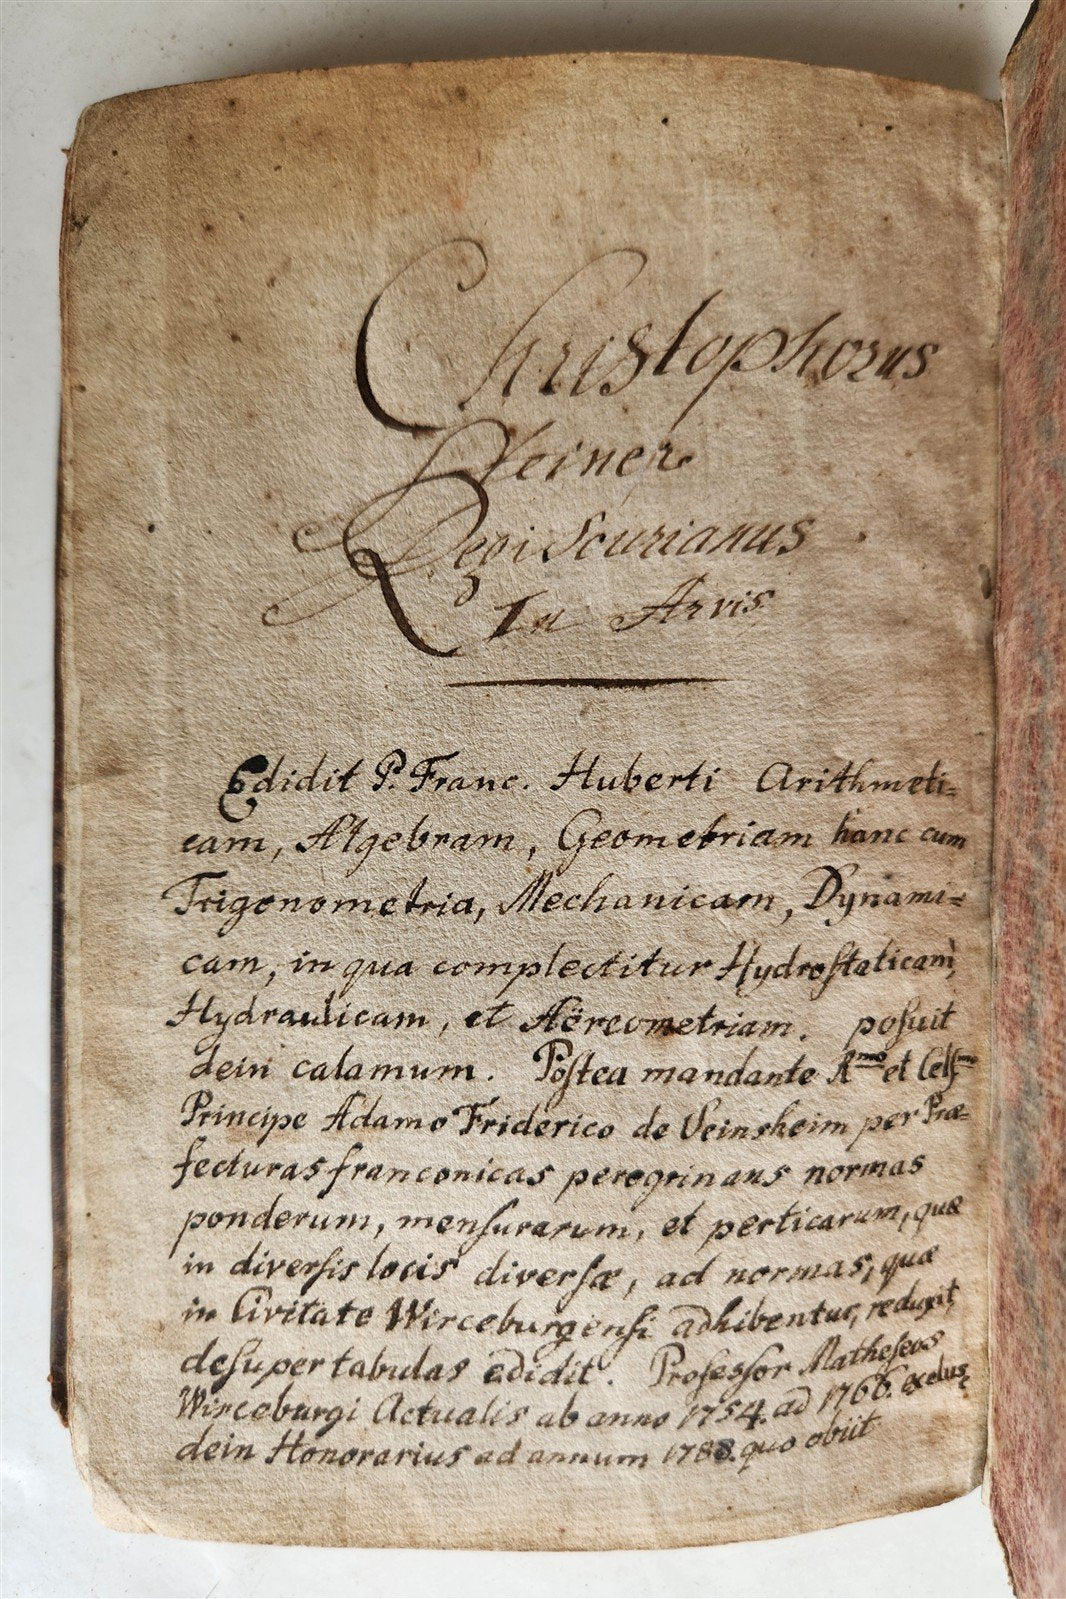 Christophorus
Steiner
Regiscurianus
In Arvis.
Edidit P. Franc. Huberti Arithmeti=
cam, Algebram, Geometriam hanc cum
Trigonometria, Mechanicam, Dynami=
cam, in qua complectitur Hydroſtaticam,
Hydraulicam, et Aëreometriam. posuit
dein calamum. Poſtea mandante Rmo et Celſmo
Principe Adamo Friderico de Seinsheim per Præ=
fecturas franconicas peregrinans normas
ponderum, menſurarum, et perticarum, quæ
in diverſis locis diverſæ, ad normas, quæ
in Civitate Wirceburgenſi adhibentur, reduxit,
desuper tabulas edidit. Profeſsor Matheſeos
Wirceburgi Actualis ab anno 1754. ad 1766. exclus,
dein Honorarius ad annum 1788. quo obiit